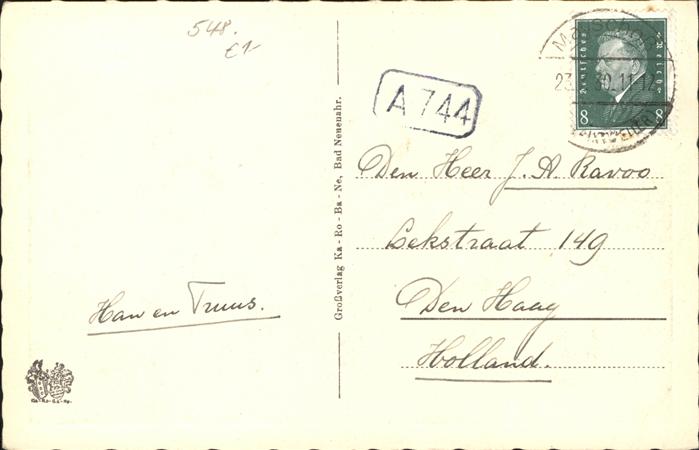 548.
€1-
A 744
23. 30.11-12
Deutsches Reich
8 8
Den Heer J. A. Ravoo
Lekstraat 149
Den Haag
Holland.
Han en Truus.
Großverlag Ka-Ro-Ba-Ne, Bad Neuenahr.
Ka-Ro-Ba-Ne.